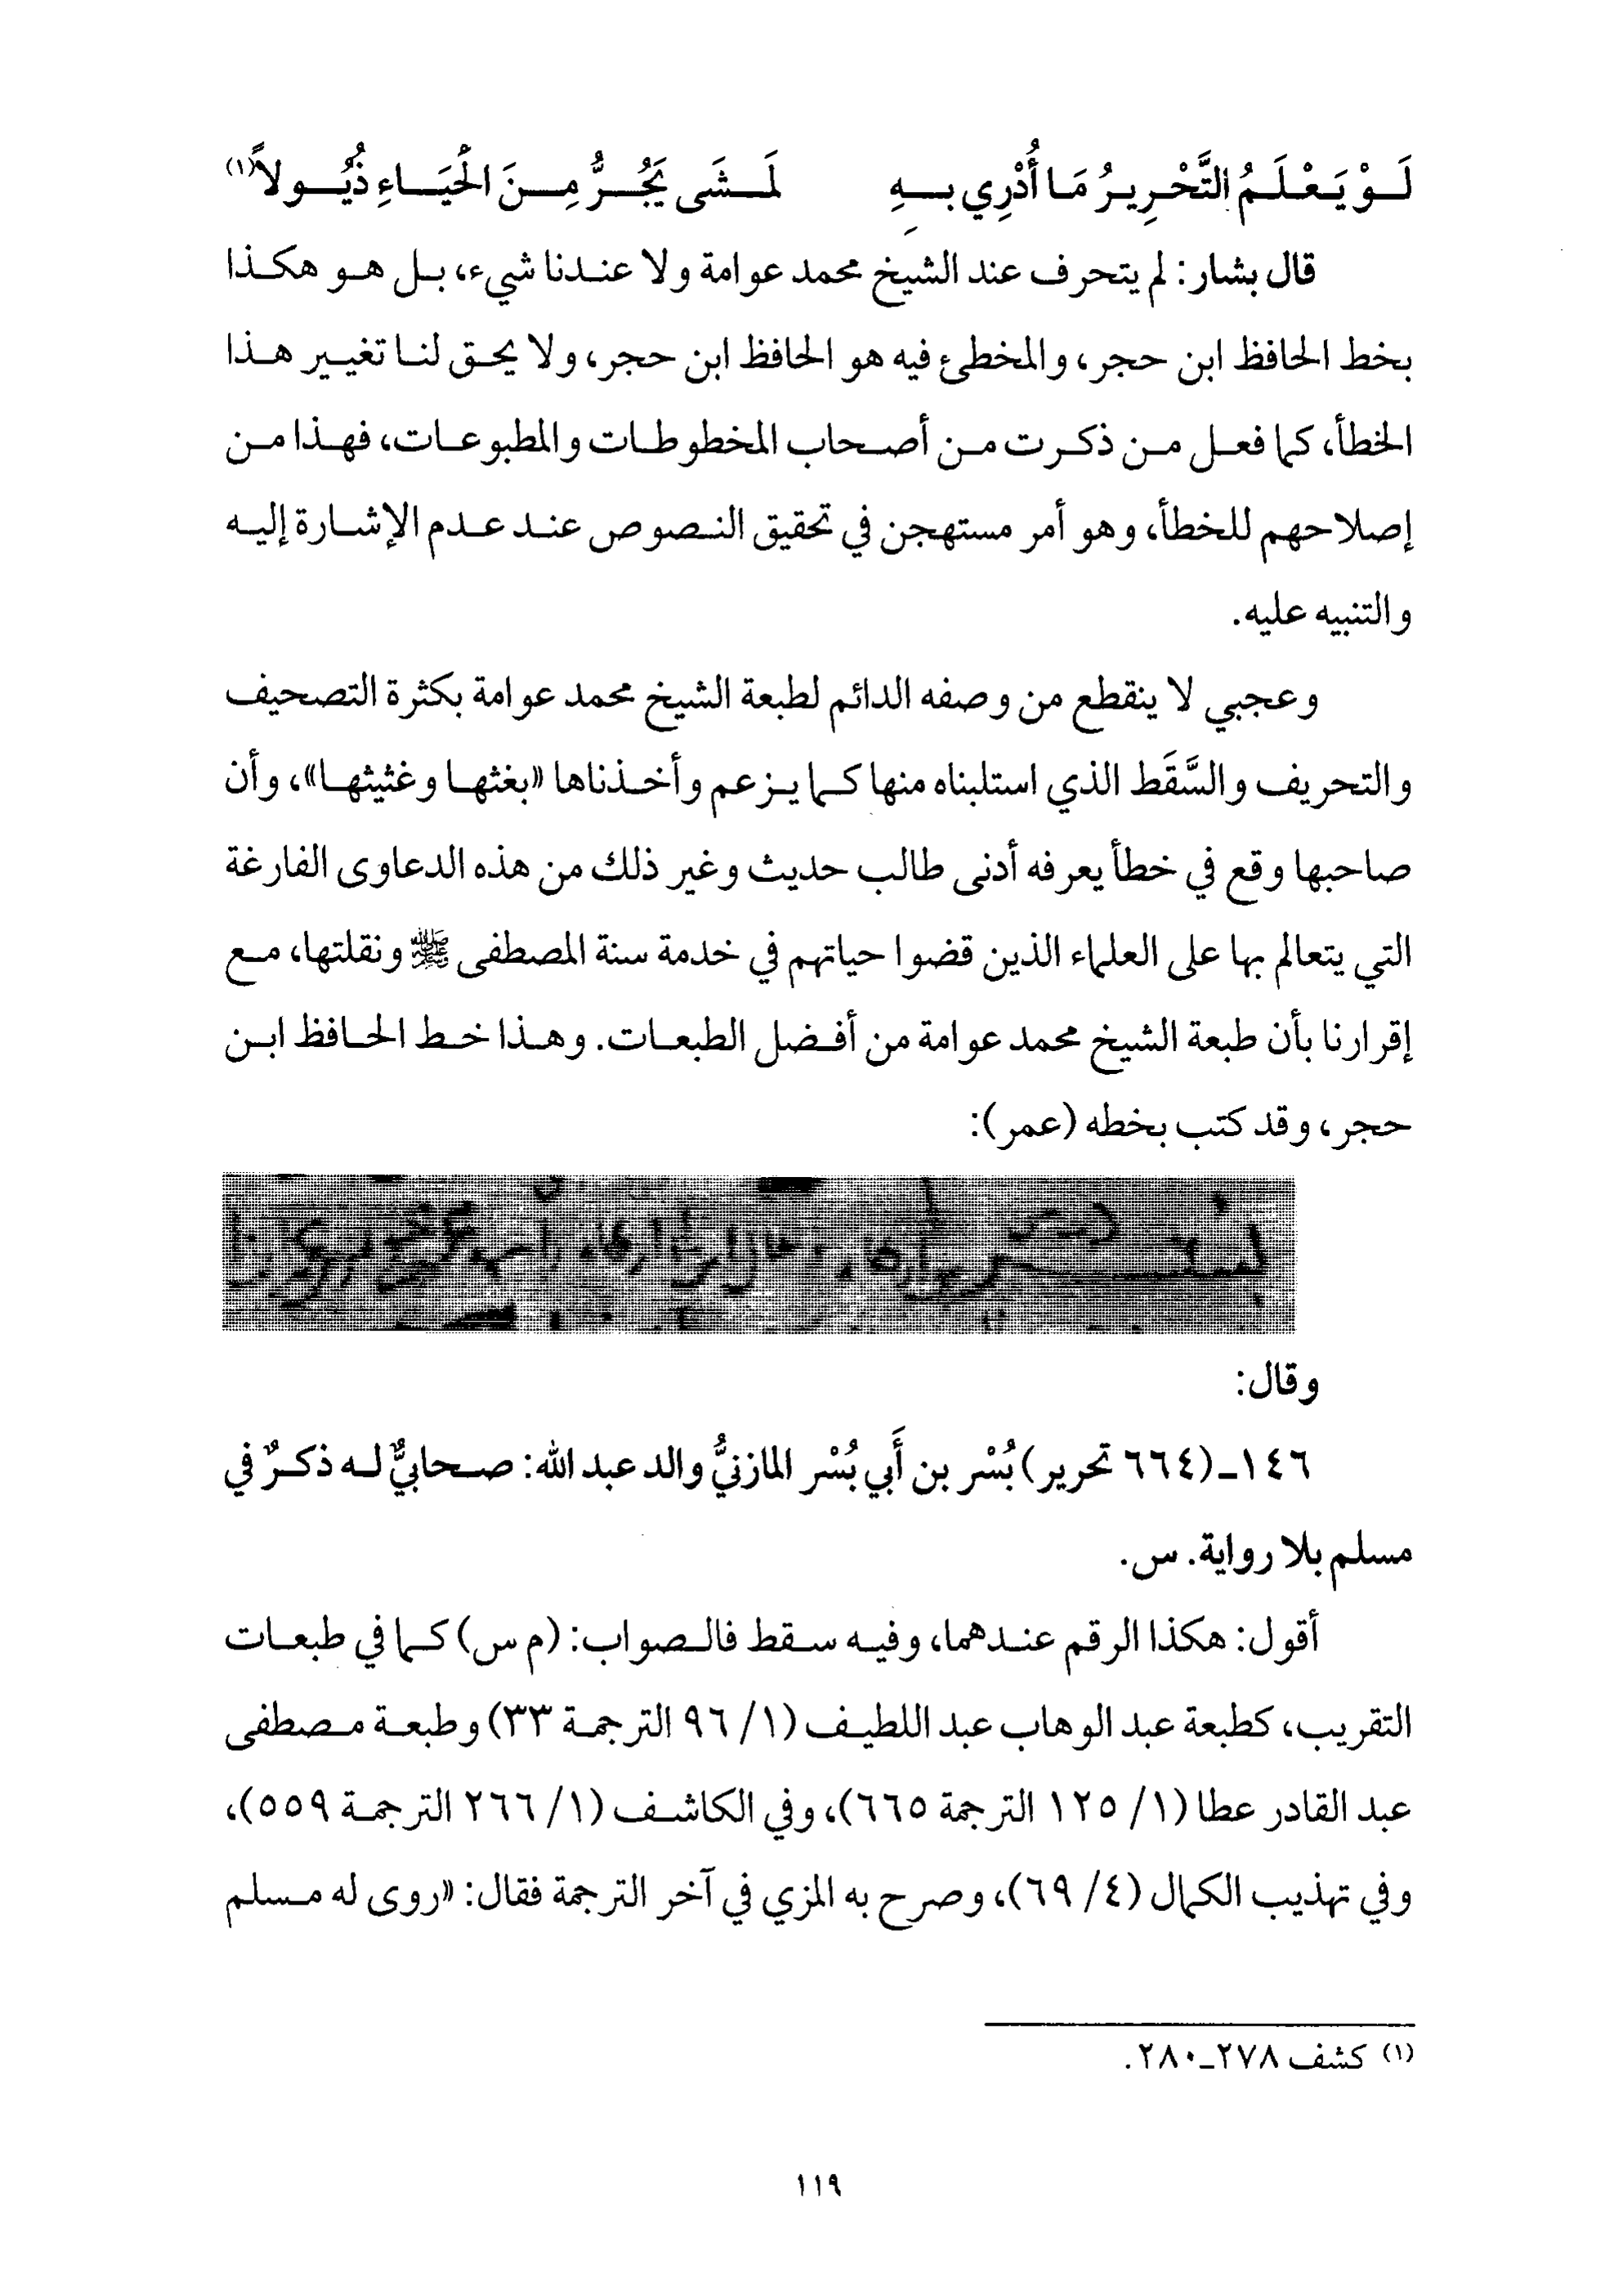 لَوْ يَعْلَمُ التَّحْرِيرُ مَا أُدْرِي بِهِ لَمَشَى يَجُرُّ مِنَ الْحَيَاءِ ذُيُولاً(١)
قال بشار: لم يتحرف عند الشيخ محمد عوامة ولا عندنا شيء، بل هو هكذا
بخط الحافظ ابن حجر، والمخطئ فيه هو الحافظ ابن حجر، ولا يحق لنا تغيير هذا
الخطأ، كما فعل من ذكرت من أصحاب المخطوطات والمطبوعات، فهذا من
إصلاحهم للخطأ، وهو أمر مستهجن في تحقيق النصوص عند عدم الإشارة إليه
والتنبيه عليه.
وعجبي لا ينقطع من وصفه الدائم لطبعة الشيخ محمد عوامة بكثرة التصحيف
والتحريف والسَّقَط الذي استلبناه منها كما يزعم وأخذناها «بغثها وغثيثها»، وأن
صاحبها وقع في خطأ يعرفه أدنى طالب حديث وغير ذلك من هذه الدعاوى الفارغة
التي يتعالم بها على العلماء الذين قضوا حياتهم في خدمة سنة المصطفى ﷺ ونقلتها، مع
إقرارنا بأن طبعة الشيخ محمد عوامة من أفضل الطبعات. وهذا خط الحافظ ابن
حجر، وقد كتب بخطه (عمر):
وقال:
١٤٦ـ (٦٦٤ تحرير) بُسْر بن أَبي بُسْر المازنيُّ والد عبد الله: صحابيٌّ له ذكرٌ في
مسلم بلا رواية. س.
أقول: هكذا الرقم عندهما، وفيه سقط فالصواب: (م س) كما في طبعات
التقريب، كطبعة عبد الوهاب عبد اللطيف (١/ ٩٦ الترجمة ٣٣) وطبعة مصطفى
عبد القادر عطا (١/ ١٢٥ الترجمة ٦٦٥)، وفي الكاشف (١/ ٢٦٦ الترجمة ٥٥٩)،
وفي تهذيب الكمال (٤/ ٦٩)، وصرح به المزي في آخر الترجمة فقال: «روى له مسلم
(١) كشف ٢٧٨ـ٢٨٠.
١١٩